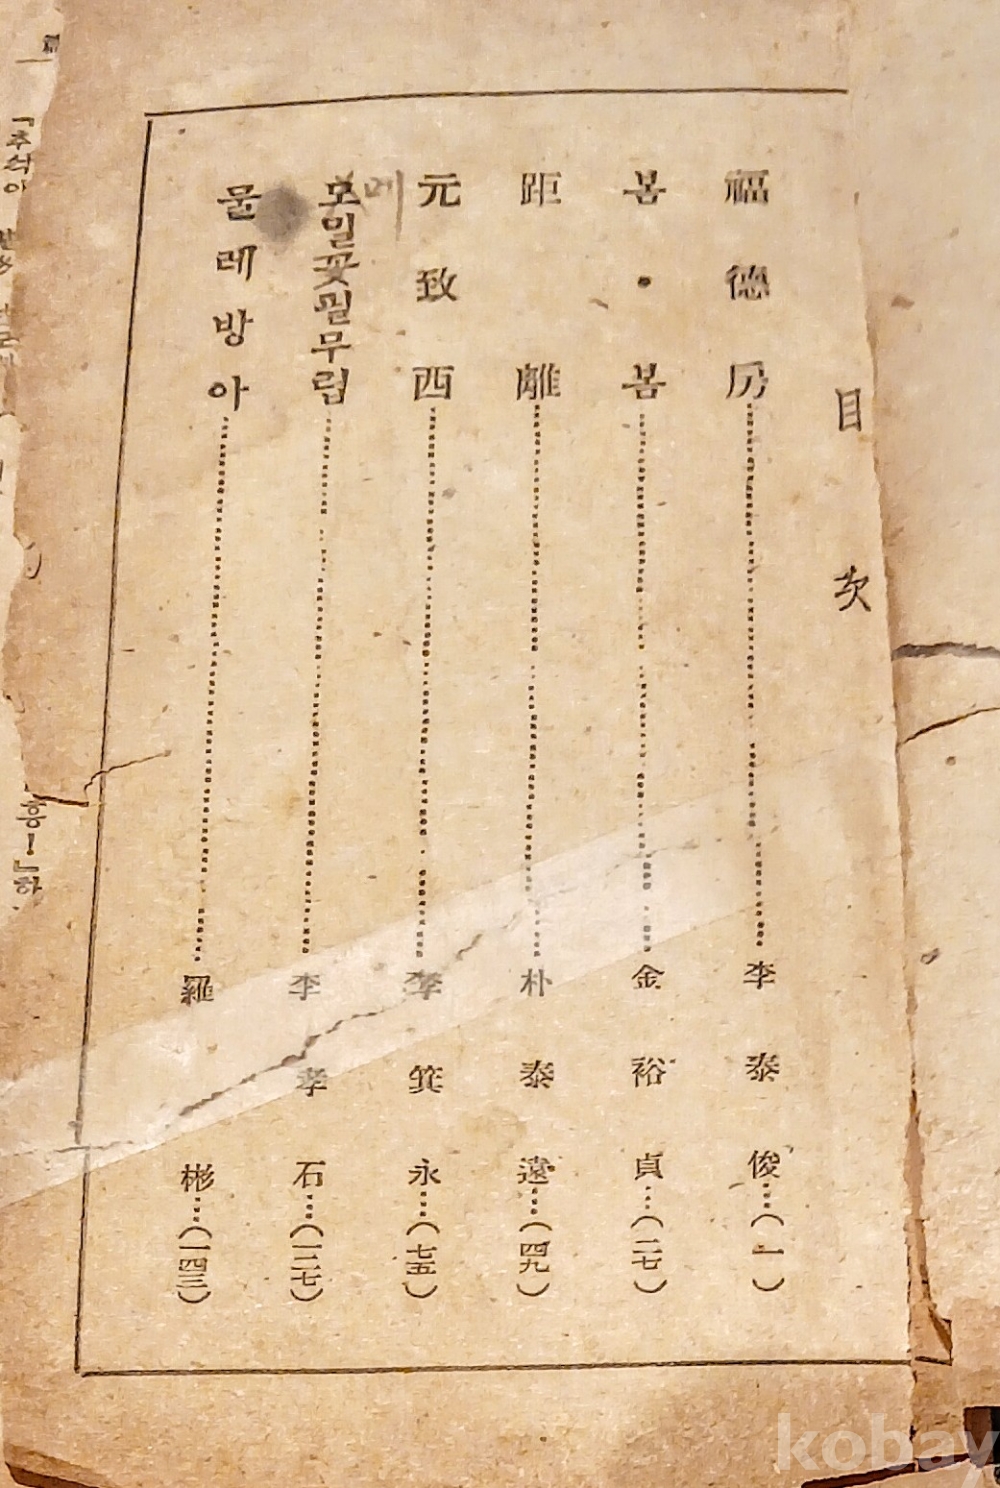 目次
福德房……李泰俊…(一)
봄·봄……金裕貞…(二七)
距離……朴泰遠…(四九)
元致西……李箕永…(七五)
메
모밀꽃필무렵……李孝石…(一二七)
물레방아……羅彬…(一四三)
『추석아
흥ー』하
kobay